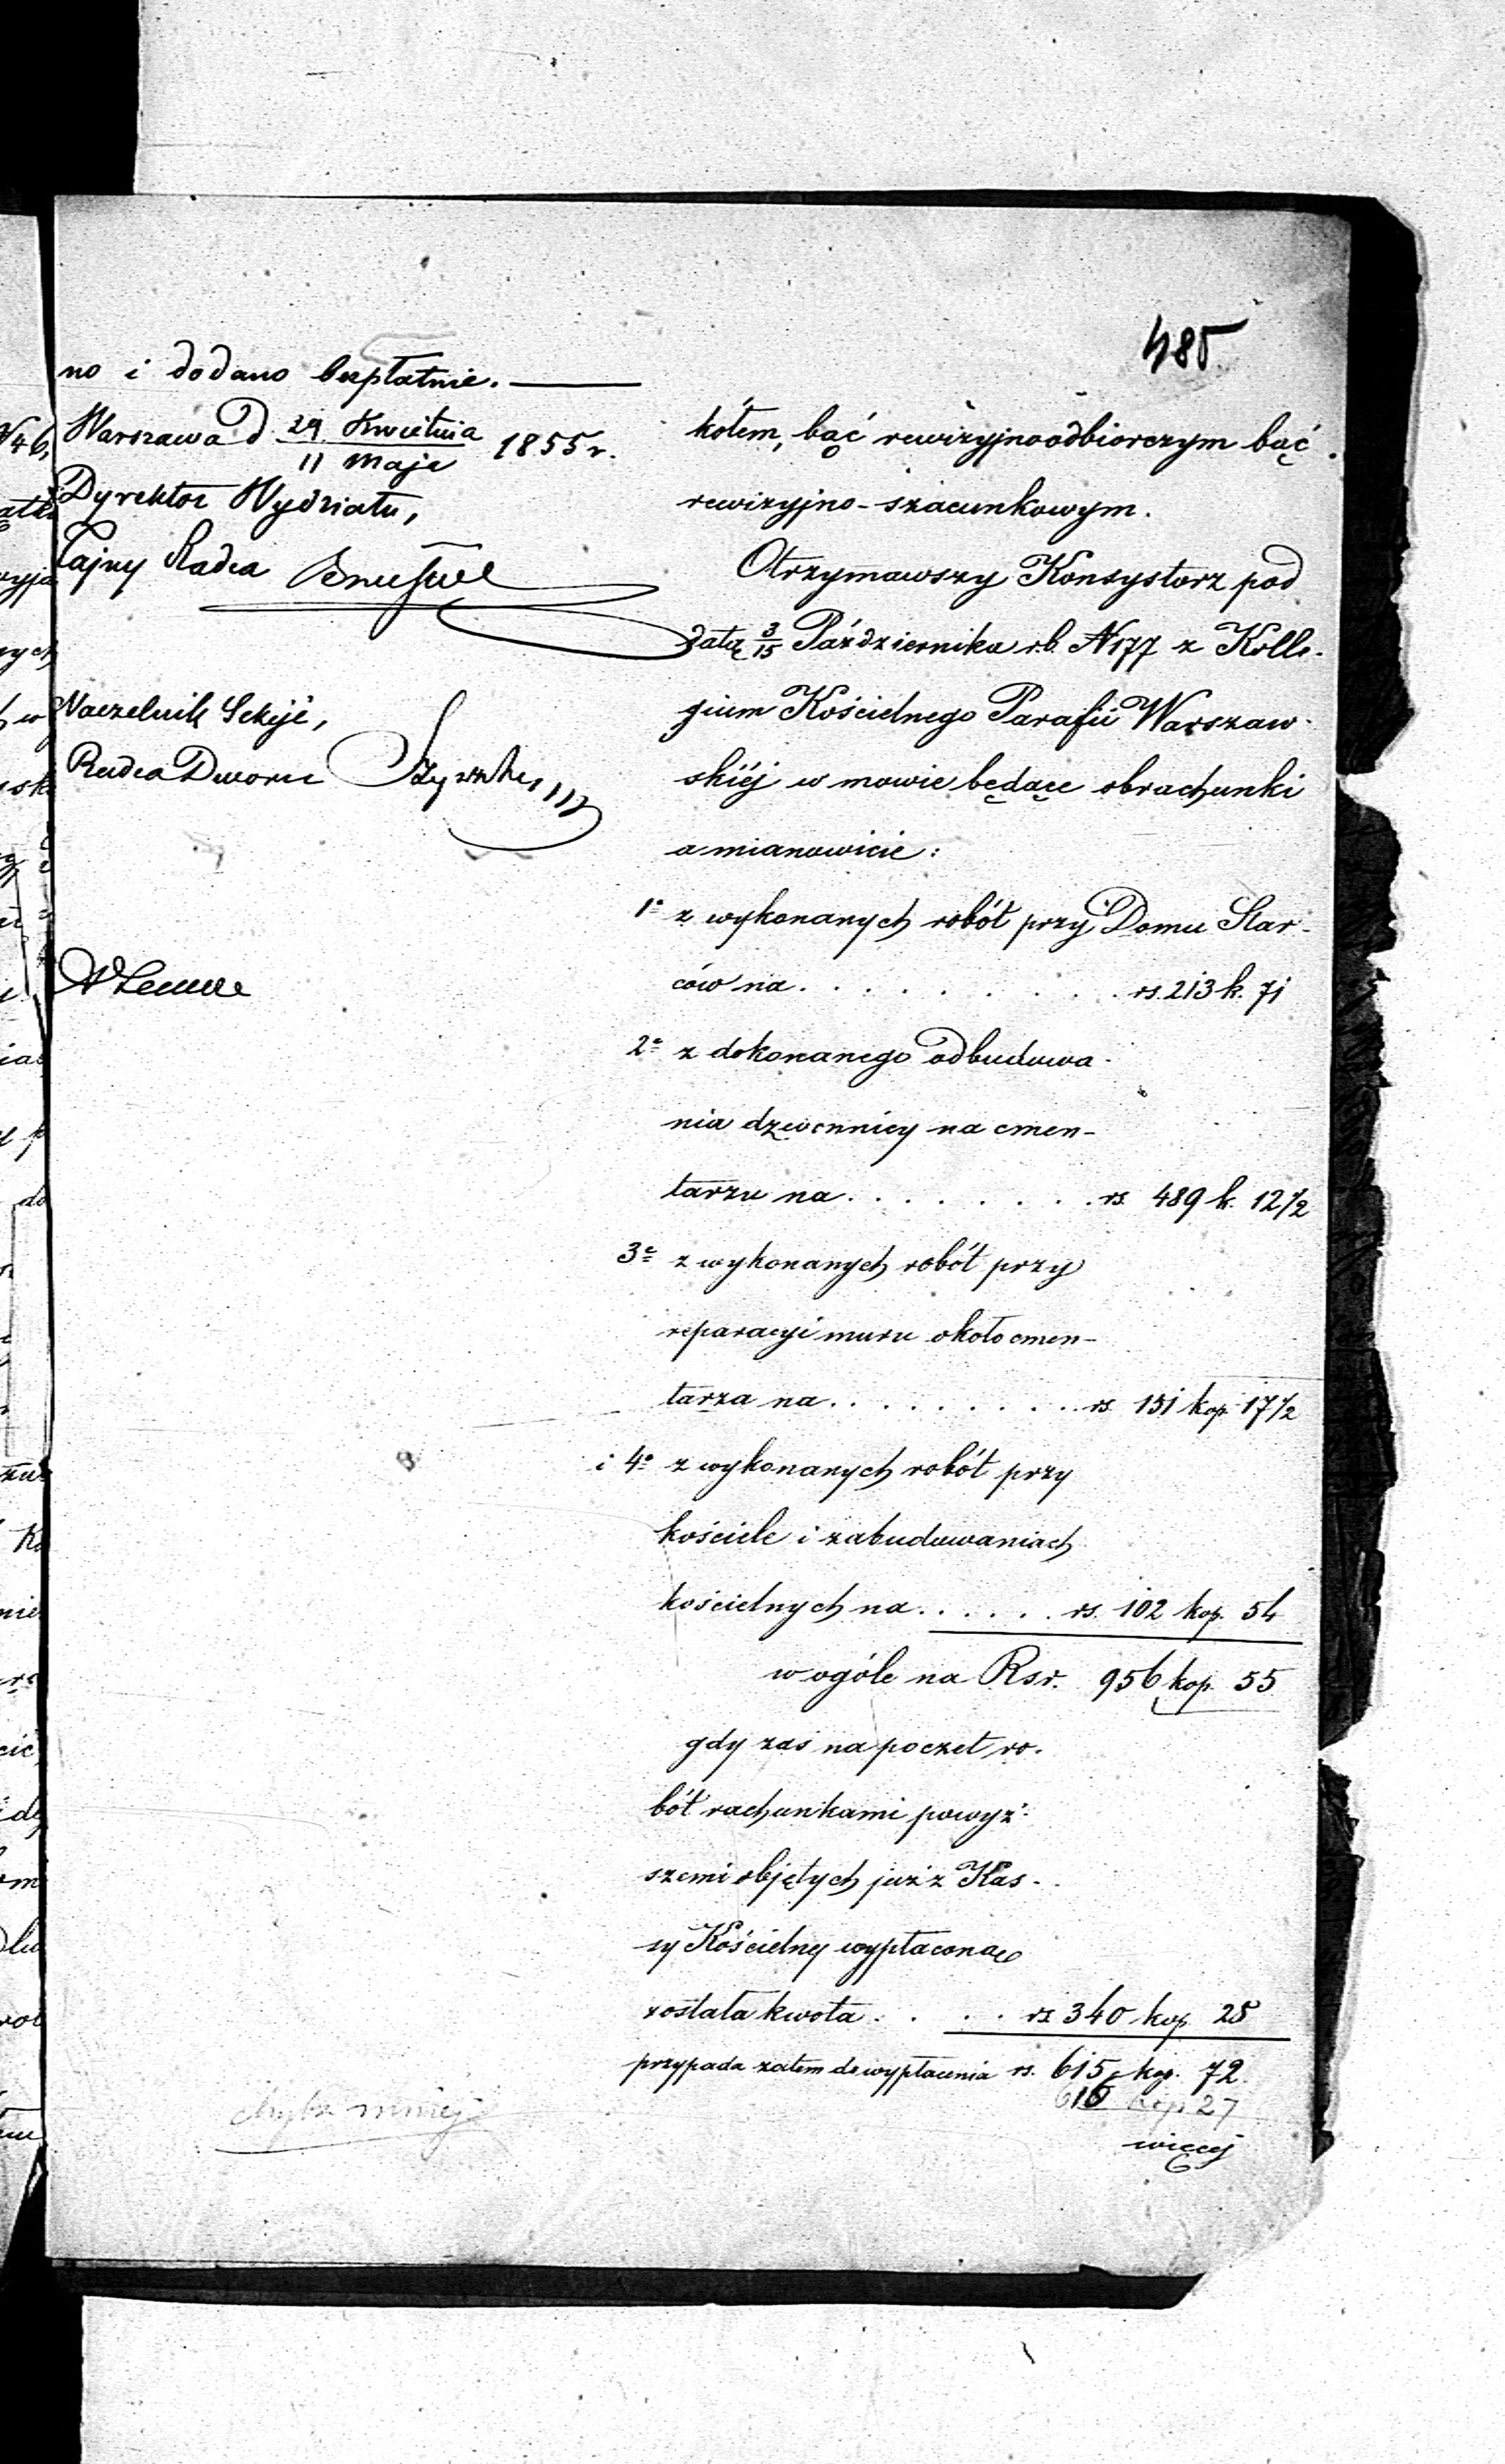 485
no i dodano bezpłatnie.
Warszawa d. 29 Kwietnia / 11 Maja 1855 r.
Dyrektor Wydziału,
Tajny Radca
Naczelnik Sekcji,
Radca Dworu
kółem, bąć rewizyjnoodbiorczym bąć
rewizyjno-szacunkowym.
Otrzymawszy Konsystorz pod
datą 3/15 Października r.b. N 177 z Kolle-
gium Kościelnego Parafii Warszaw-
skiéj w mowie będące obrachunki
a mianowicie:
1º z wykonanych robót przy Domu Star-
ców na . . . . . . . . . rs. 213 k. 71
2º z dokonanego odbudowa-
nia dzwonnicy na cmen-
tarzu na . . . . . . . . rs. 489 k. 12½
3º z wykonanych robót przy
reparacyi muru około cmen-
tarza na . . . . . . . . . rs. 151 kop. 17½
i 4º z wykonanych robót przy
kościele i zabudowaniach
kościelnych na . . . . . . rs. 102 kop. 54
w ogóle na Rsr. 956 kop. 55
gdy zaś na poczet ro-
bót rachunkami powyż-
szemi objętych już z Kas-
sy Kościelnej wypłaconą
została kwota . . . . rs 340 kop. 28
przypada zatem do wypłacenia rs. 615 kop. 72.
616 kop 27
więcej
chyba mniej